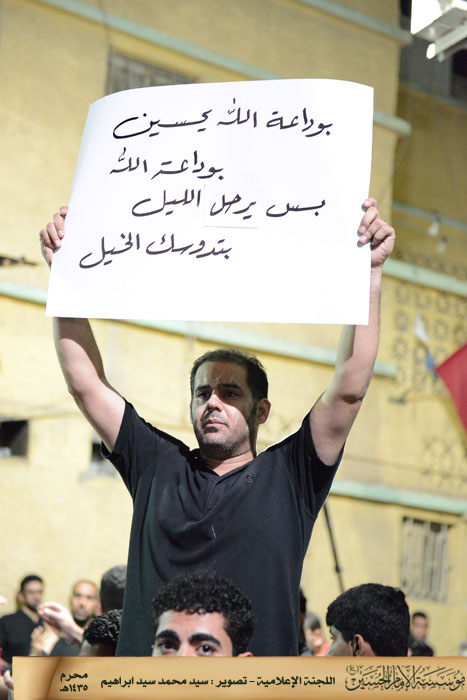 بوداعة الله يحسين
بوداعة الله
بس يرحل الليل
بتدوسك الخيل
مؤسسة الإمام الحسين (ع)
اللجنة الإعلامية - تصوير : سيد محمد سيد ابراهيم
محرم
١٤٣٥هـ